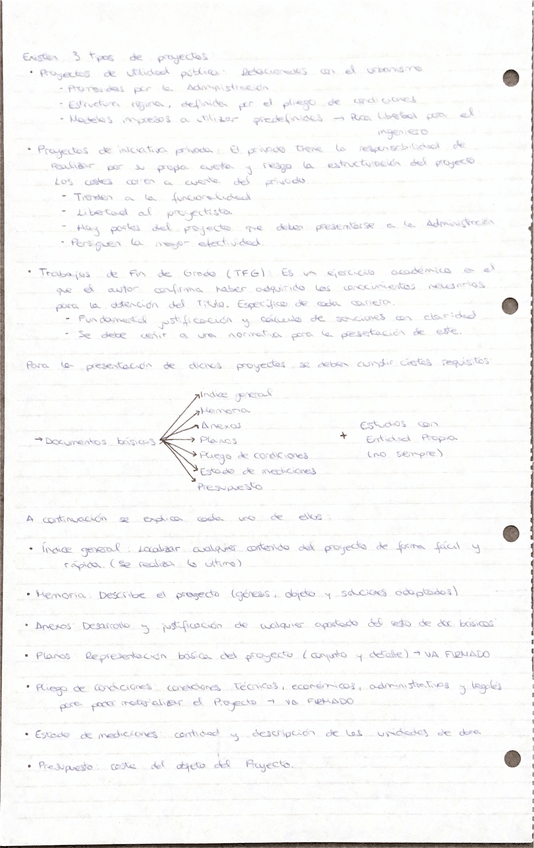 Existen 3 tipos de proyectos
• Proyectos de utilidad pública: Relacionados con el urbanismo
- Promovidos por la Administración
- Estructura rígida, definida por el pliego de condiciones
- Modelos impresos a utilizar predefinidos → Poca libertad para el
ingeniero
• Proyectos de iniciativa privada: El privado tiene la responsabilidad de
realizar por su propia cuenta y riesgo la estructuración del proyecto.
Los costes corren a cuenta del privado.
- Tienden a la funcionalidad
- Libertad al proyectista
- Hay partes del proyecto que deben presentarse a la Administración
- Persiguen la mayor efectividad.
• Trabajos de Fin de Grado (TFG): Es un ejercicio académico en el
que el autor confirma haber adquirido los conocimientos necesarios
para la obtención del Título. Específico de cada carrera.
- Fundamental justificación y cálculo de soluciones con claridad
- Se debe ceñir a una normativa para la presentación de este.
Para la presentación de dichos proyectos se deben cumplir ciertos requisitos:
→ Documentos básicos
Índice general
Memoria
Anexos
Planos
Pliego de condiciones
Estado de mediciones
Presupuesto
+ Estudios con
Entidad Propia
(no siempre)
A continuación se explica cada uno de ellos:
• Índice general: Localizar cualquier contenido del proyecto de forma fácil y
rápida (Se realiza lo último)
• Memoria: Describe el proyecto (génesis, objeto y soluciones adoptadas)
• Anexos: Desarrollo y justificación de cualquier apartado del resto de doc. básicos
• Planos: Representación básica del proyecto (conjunto y detalle) → VA FIRMADO
• Pliego de condiciones: condiciones técnicas, económicas, administrativas y legales
para poder materializar el Proyecto → VA FIRMADO
• Estado de mediciones: cantidad y descripción de las unidades de obra
• Presupuesto: coste del objeto del Proyecto.